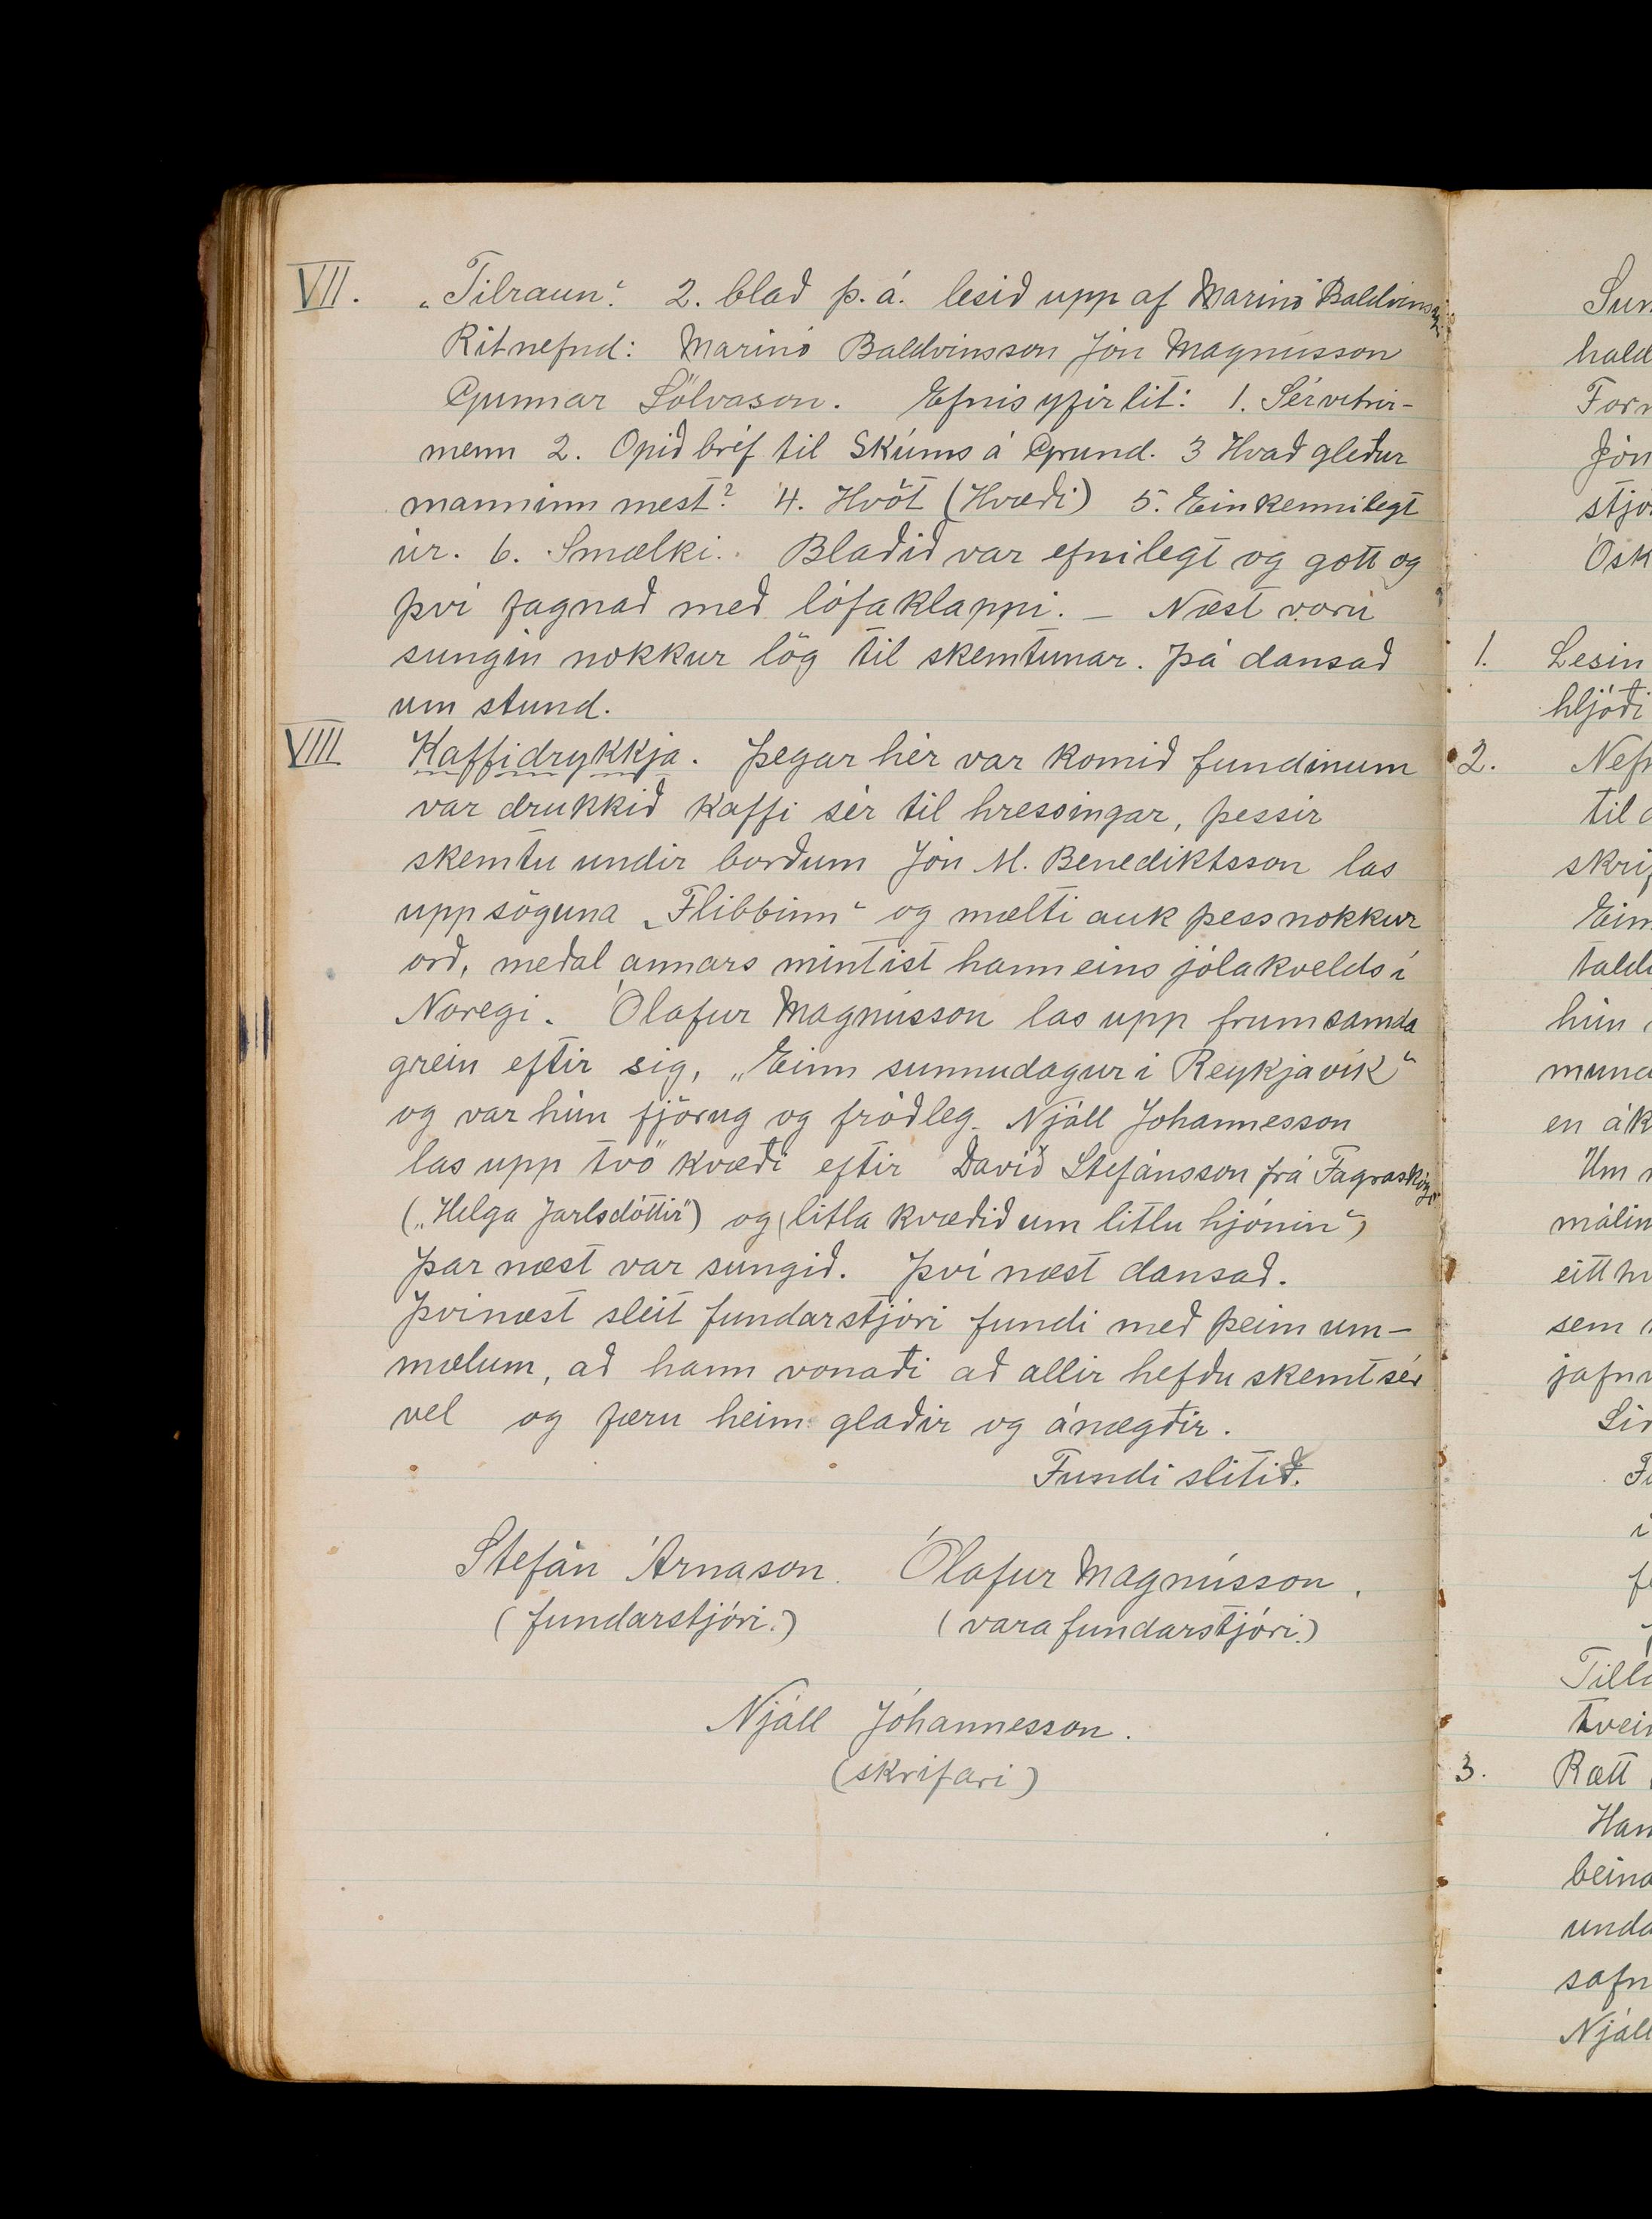 VII. „Tilraun“ 2. blað þ. á. lesið upp af Marinó Baldvinssyni
Ritnefnd: Marinó Baldvinsson Jón Magnússon
Gunnar Sölvason. Efnisyfirlit: 1. Sérvitrir-
menn 2. Opið bréf til Skúms á Grund. 3 Hvað gleður
manninn mest? 4. Hvöt (Kvæði) 5. Einkennilegt
úr. 6. Smælki. Blaðið var efnilegt og gott og
því fagnað með lófaklappi. – Næst voru
sungin nokkur lög til skemtunar. Þá dansað
um stund.
VIII Kaffidrykkja. Þegar hér var komið fundinum
var drukkið kaffi sér til hressingar, þessir
skemtu undir borðum Jón M. Benediktsson las
upp söguna „Flibbinn“ og mælti auk þess nokkur
orð, meðal annars mintist hann eins jólakvelds í
Noregi. Ólafur Magnússon las upp frumsamda
grein eftir sig, „Einn sunnudagur í Reykjavík“
og var hún fjörug og fróðleg. Njáll Jóhannesson
las upp tvö kvæði eftir Davíð Stefánsson frá Fagraskógi
(„Helga Jarlsdóttir“) og (litla kvæðið um litlu hjónin“)
Þar næst var sungið. Því næst dansað.
Þvínæst sleit fundarstjóri fundi með þeim um-
mælum, að hann vonaði að allir hefðu skemt sér
vel og færu heim glaðir og ánægðir.
Fundi slitið.
Stefán Árnason. Ólafur Magnússon.
(fundarstjóri.) (vara fundarstjóri.)
Njáll Jóhannesson.
(skrifari)
hald
Jón
1. Lesin
hljóði
2.
til
hún
en
Um
málin
sem
3. Rætt
Njáll